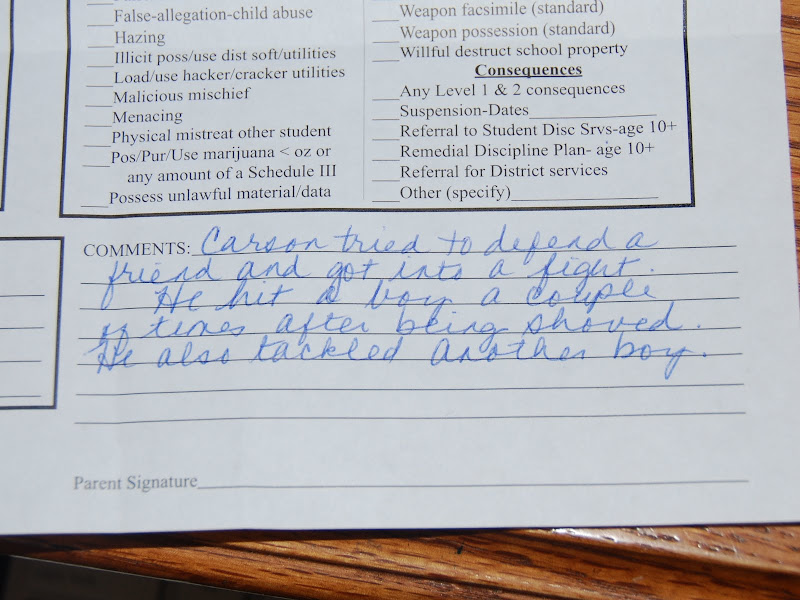 ___False-allegation-child abuse
___Hazing
___Illicit poss/use dist soft/utilities
___Load/use hacker/cracker utilities
___Malicious mischief
___Menacing
___Physical mistreat other student
___Pos/Pur/Use marijuana < oz or
any amount of a Schedule III
___Possess unlawful material/data
___Weapon facsimile (standard)
___Weapon possession (standard)
___Willful destruct school property
Consequences
___Any Level 1 & 2 consequences
___Suspension-Dates_______________
___Referral to Student Disc Srvs-age 10+
___Remedial Discipline Plan- age 10+
___Referral for District services
___Other (specify)_______________
COMMENTS: Carson tried to defend a
friend and got into a fight.
He hit a boy a couple
of times after being shoved.
He also tackled another boy.
Parent Signature_______________